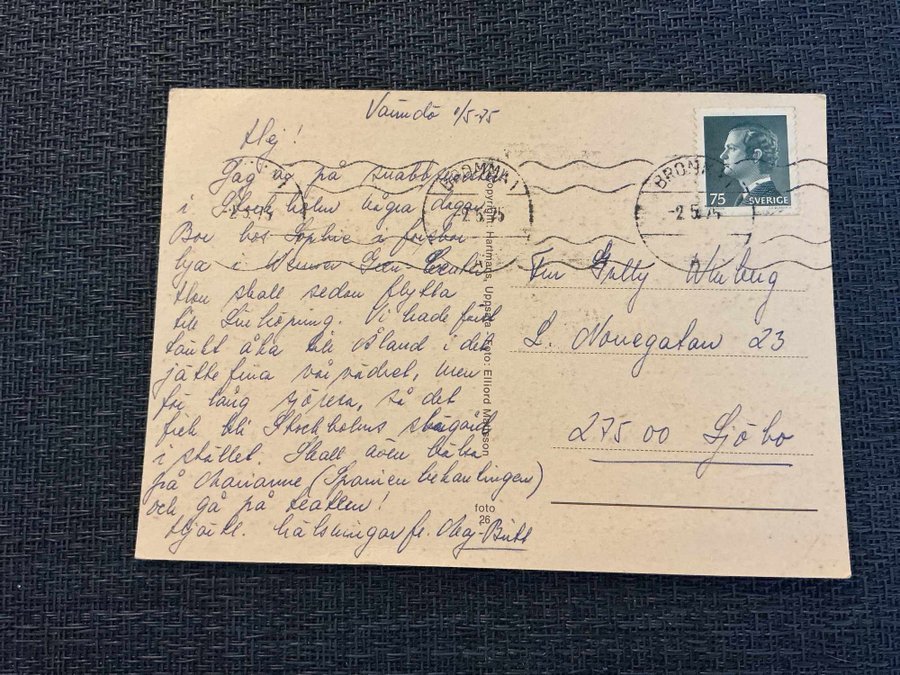 Värmdö 1/5-75
Hej!
Jag är på snabbvisit
i Stockholm några dagar
Bor hos Sophie i
lya i Wenner-Gren-Center
Hon skall sedan flytta
till Linköping. Vi hade först
tänkt åka till Åland i det
jättefina vårvädret, men
för lång sjöresa, så det
fick bli Stockholms skärgård
i stället. Skall även hälsa
på Marianne (Spanienbekantingen)
och gå på teatern!
Hjärtl. hälsningar fr. Maj-Britt
BROMMA 1
-2.5.75
BROMMA 1
-2.5.75
-2.5.75
75 SVERIGE
Copyright: Hartmans, Uppsala Foto: Elliord Mattsson
foto
26
Fru Gitty Winberg
L. Norregatan 23
275 00 Sjöbo